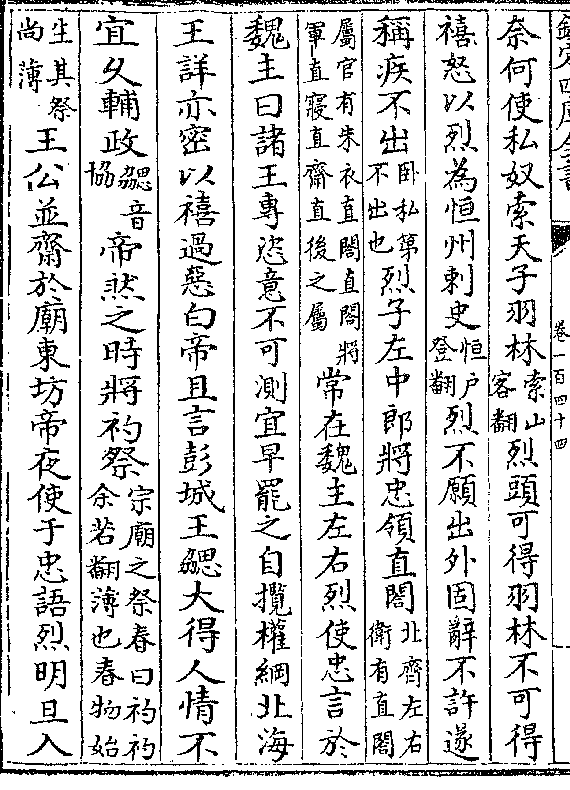 欽定四庫全書
卷一百四十四
奈何使私奴索天子羽林索山客翻烈頭可得羽林不可得
禧怒以烈為恒州刺史恒户登翻烈不願出外固辭不許遂
稱疾不出卧私第不出也烈子左中郎將忠領直閤北齊左右衛有直閤
屬官有朱衣直閤直閤將軍直寢直齋直後之屬常在魏主左右烈使忠言於
魏主曰諸王專恣意不可測宜早罷之自攬權綱北海
王詳亦密以禧過惡白帝且言彭城王勰大得人情不
宜久輔政勰音協帝然之時將礿祭宗廟之祭春曰礿礿余若翻薄也春物始
生其祭尚薄王公並齋於廟東坊帝夜使于忠語烈明旦入